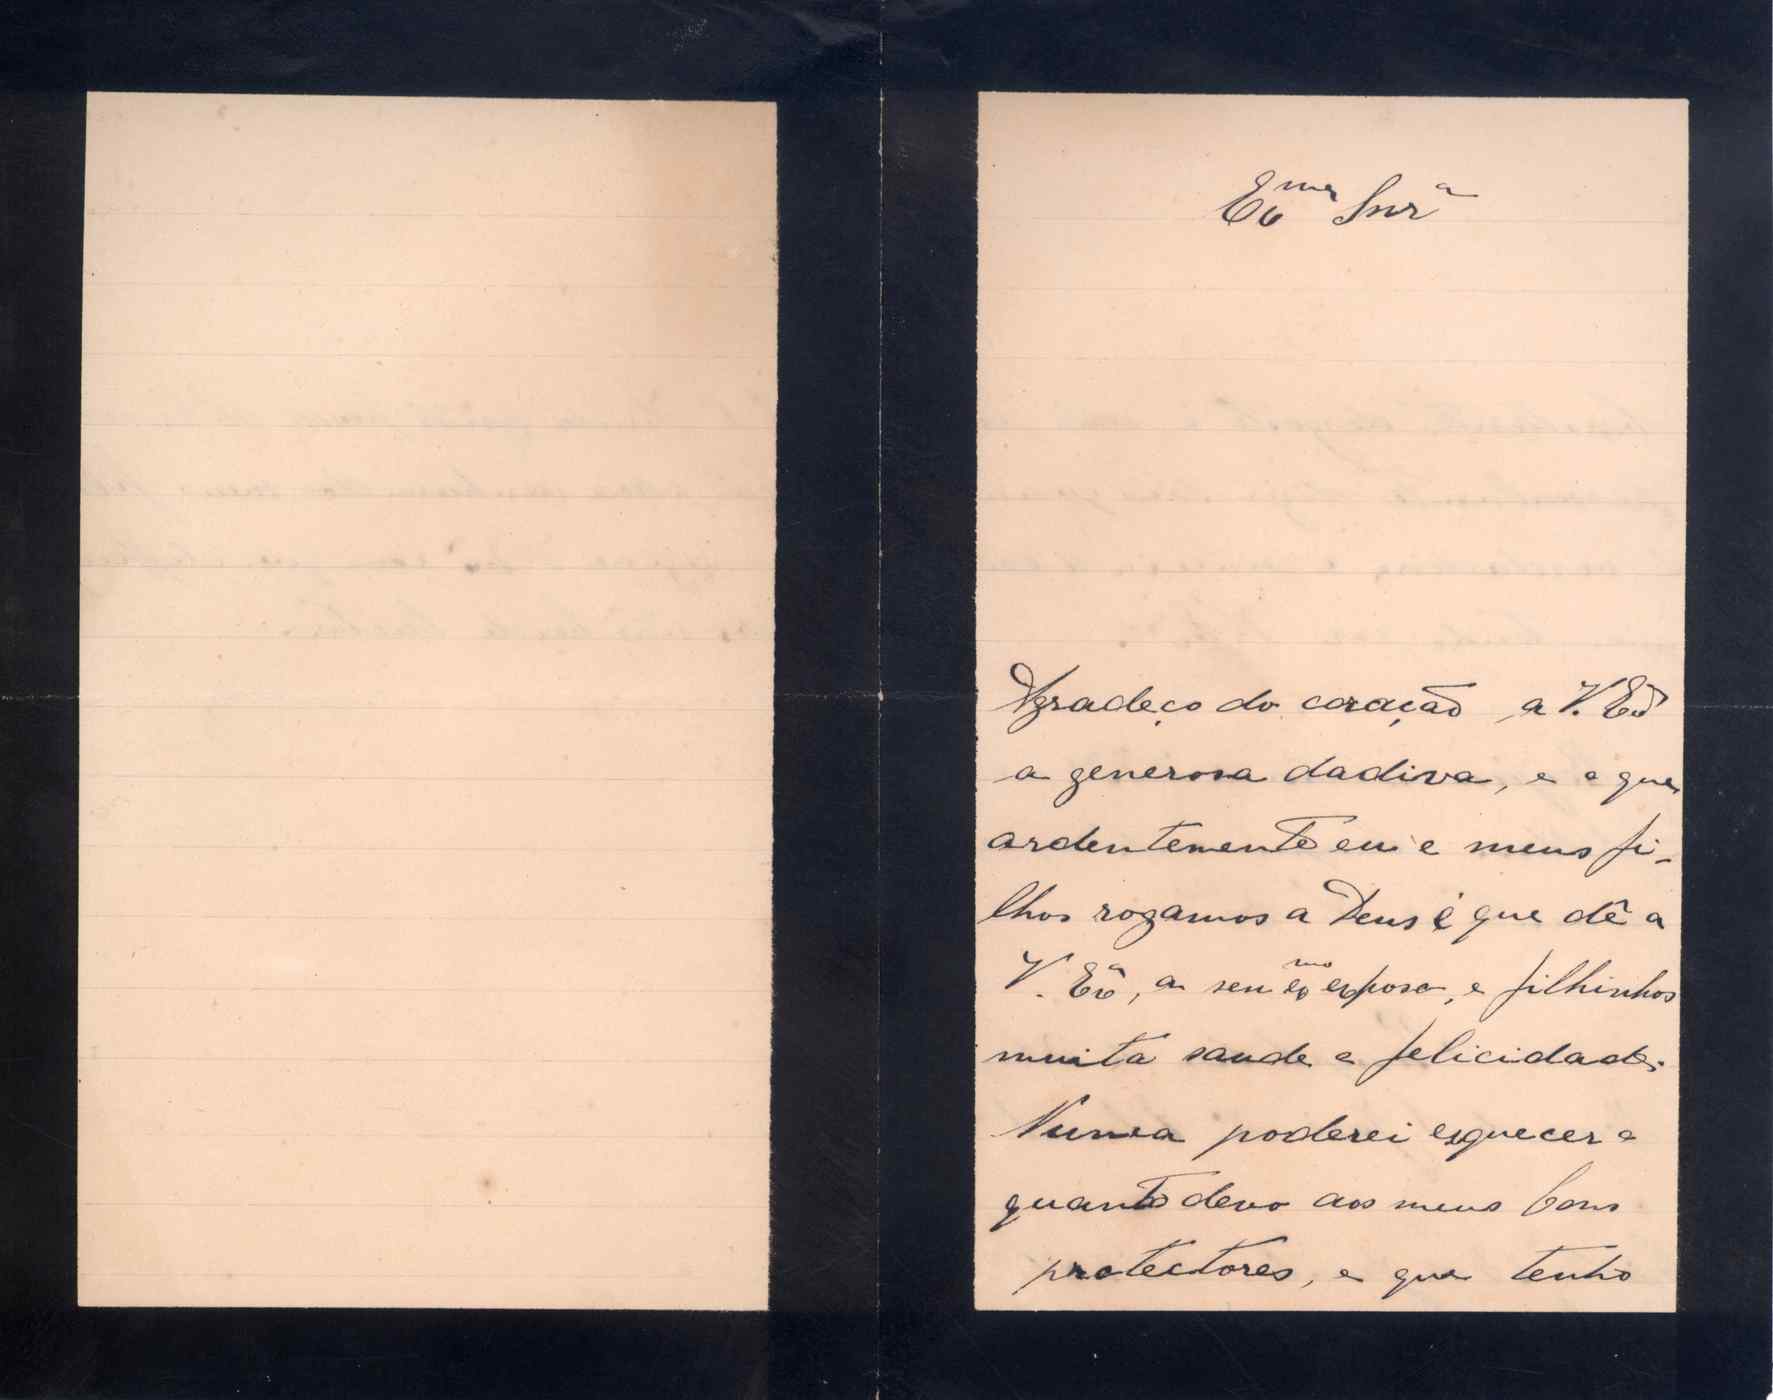 Exma Snrª
Agradeço do coração a V. Exª
a generosa dadiva, e o que
ardentemente eu e meus fi-
lhos rogamos a Deus é que dê a
V. Exª, a seu exmo esposo, e filhinhos
muita saude e felicidade.
Nunca poderei esquecer o
quanto devo aos meus bons
protectores, e que tenho